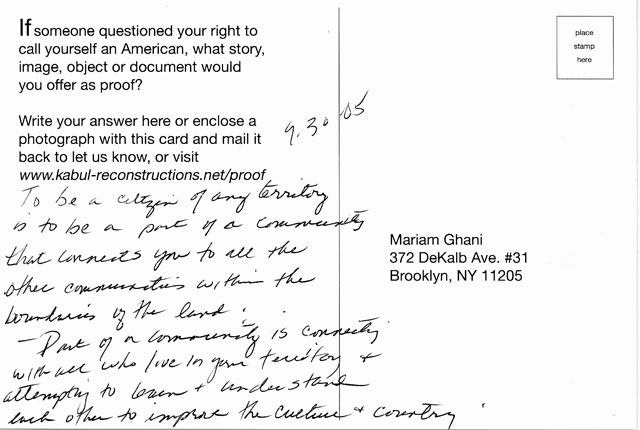 If someone questioned your right to
call yourself an American, what story,
image, object or document would
you offer as proof?
Write your answer here or enclose a
photograph with this card and mail it
back to let us know, or visit
www.kabul-reconstructions.net/proof
place
stamp
here
9.30.05
To be a citizen of any territory
is to be a part of a community
that connects you to all the
other communities within the
boundaries of the land.
- Part of a community is connecting
with all who live in your territory &
attempting to learn & understand
each other to improve the culture & country.
Mariam Ghani
372 DeKalb Ave. #31
Brooklyn, NY 11205